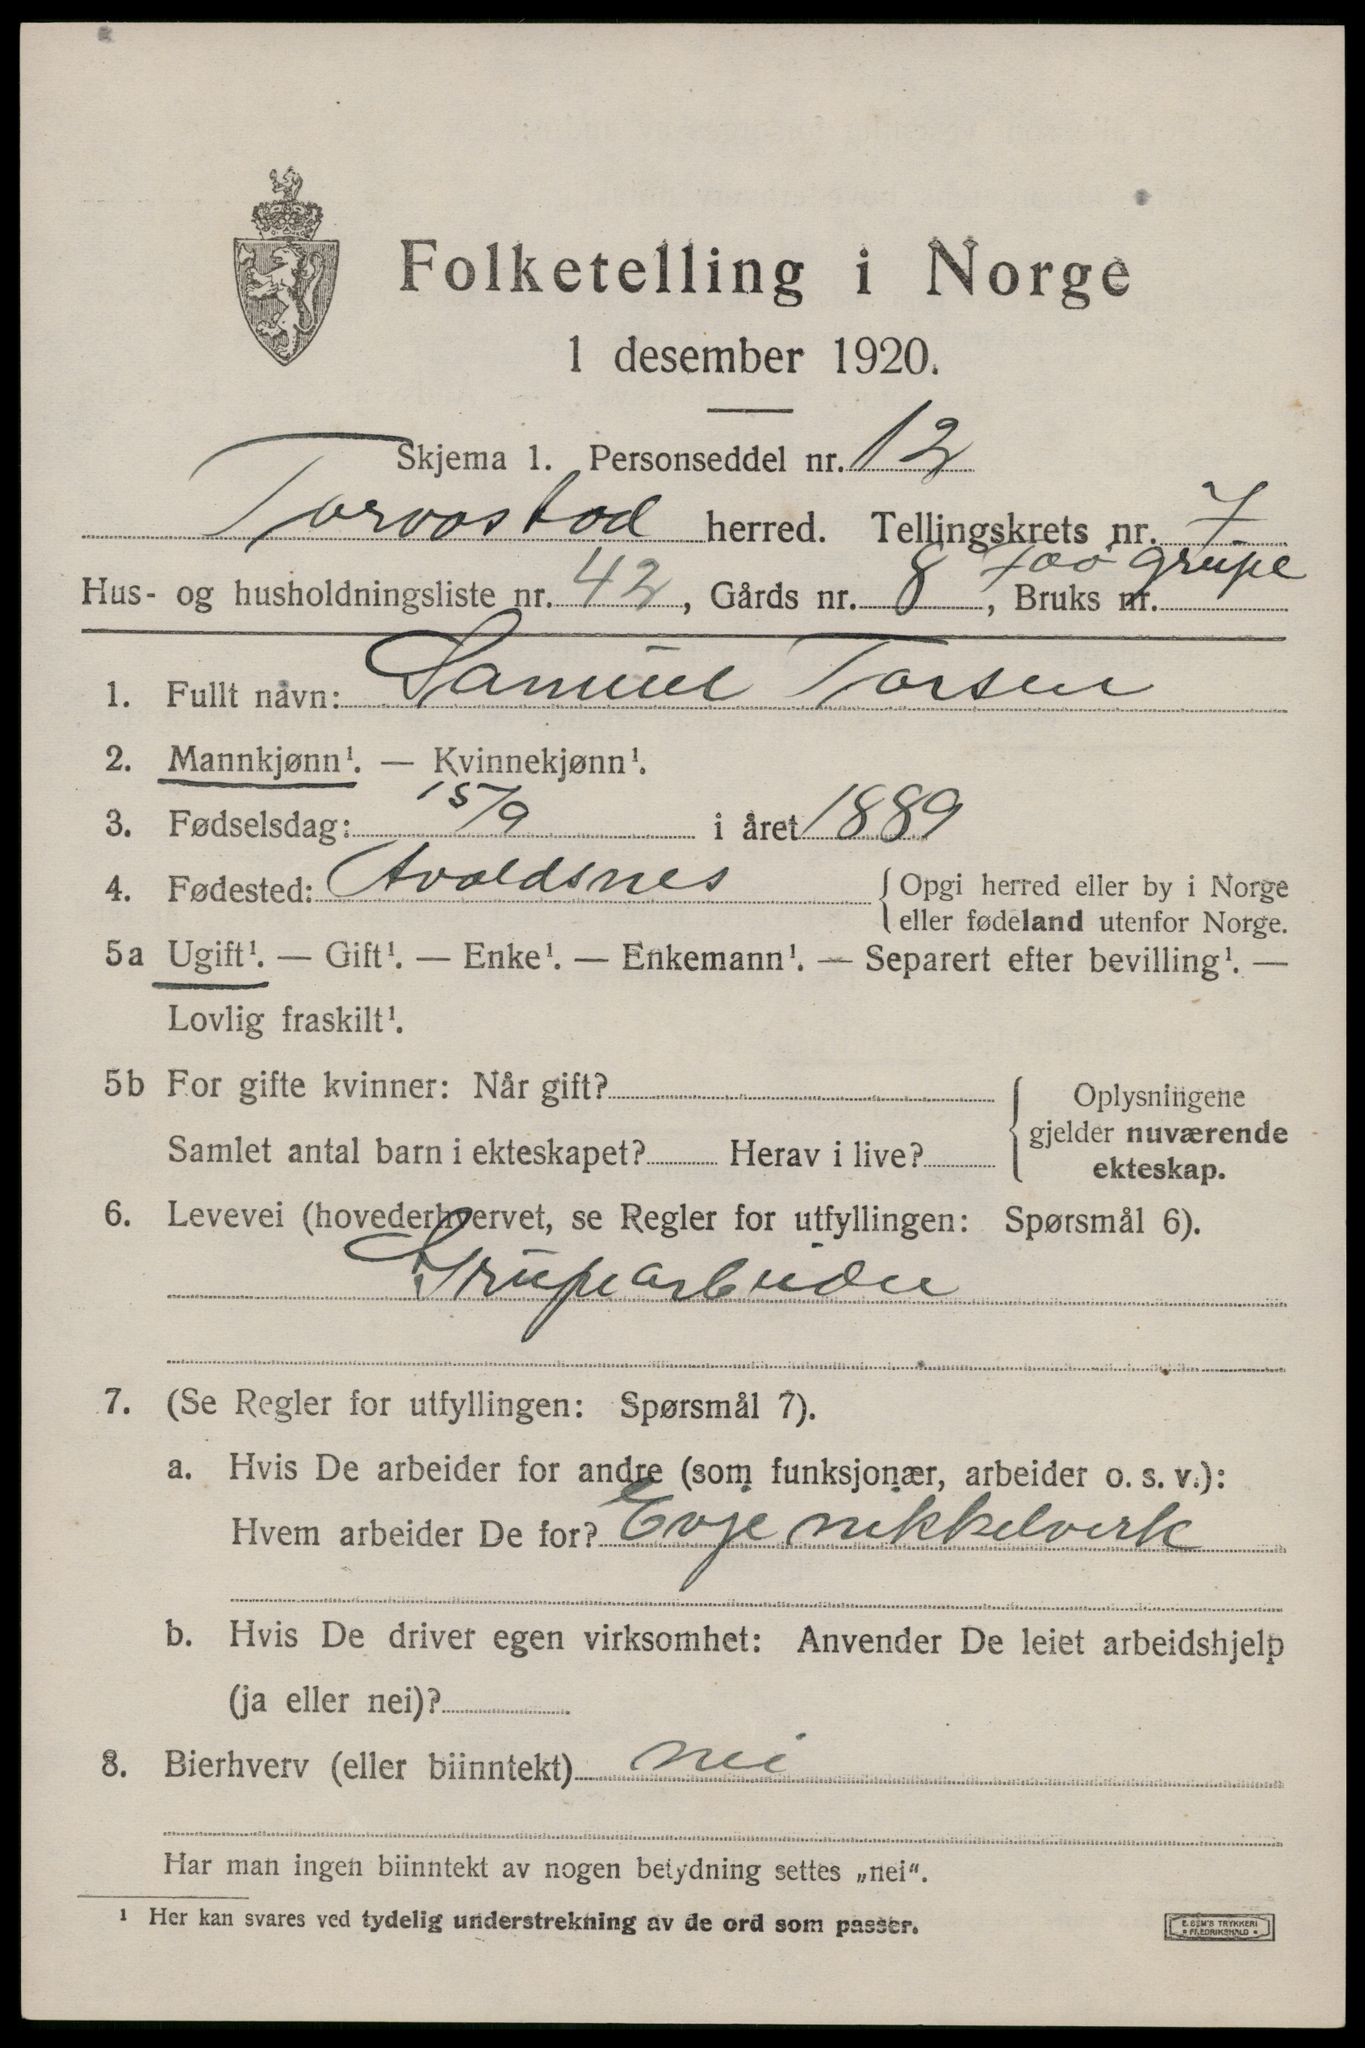 Folketelling i Norge
1 desember 1920.
Skjema 1. Personseddel nr. 12
Torvastad herred. Tellingskrets nr. 7
Hus- og husholdningsliste nr. 42, Gårds nr. 8, Bruks nr. Foó grupe
1. Fullt navn: Samuel Torsen
2. Mannkjønn¹. — Kvinnekjønn¹.
3. Fødselsdag: 15/9 i året 1889
4. Fødested: Avaldsnes {Opgi herred eller by i Norge
eller fødeland utenfor Norge.
5a Ugift¹. — Gift¹. — Enke¹. — Enkemann¹. — Separert efter bevilling¹. —
Lovlig fraskilt¹.
5b For gifte kvinner: Når gift? {Oplysningene
gjelder nuværende
Samlet antal barn i ekteskapet? Herav i live? ekteskap.
6. Levevei (hovederhvervet, se Regler for utfyllingen: Spørsmål 6).
Grupearbeider
7. (Se Regler for utfyllingen: Spørsmål 7).
a. Hvis De arbeider for andre (som funksjonær, arbeider o. s. v.):
Hvem arbeider De for? Evje nikkelverk
b. Hvis De driver egen virksomhet: Anvender De leiet arbeidshjelp
(ja eller nei)?
8. Bierhverv (eller biinntekt) nei
Har man ingen biinntekt av nogen betydning settes „nei“.
¹ Her kan svares ved tydelig understrekning av de ord som passer.
E. SEM'S TRYKKERI
* FREDRIKSHALD *